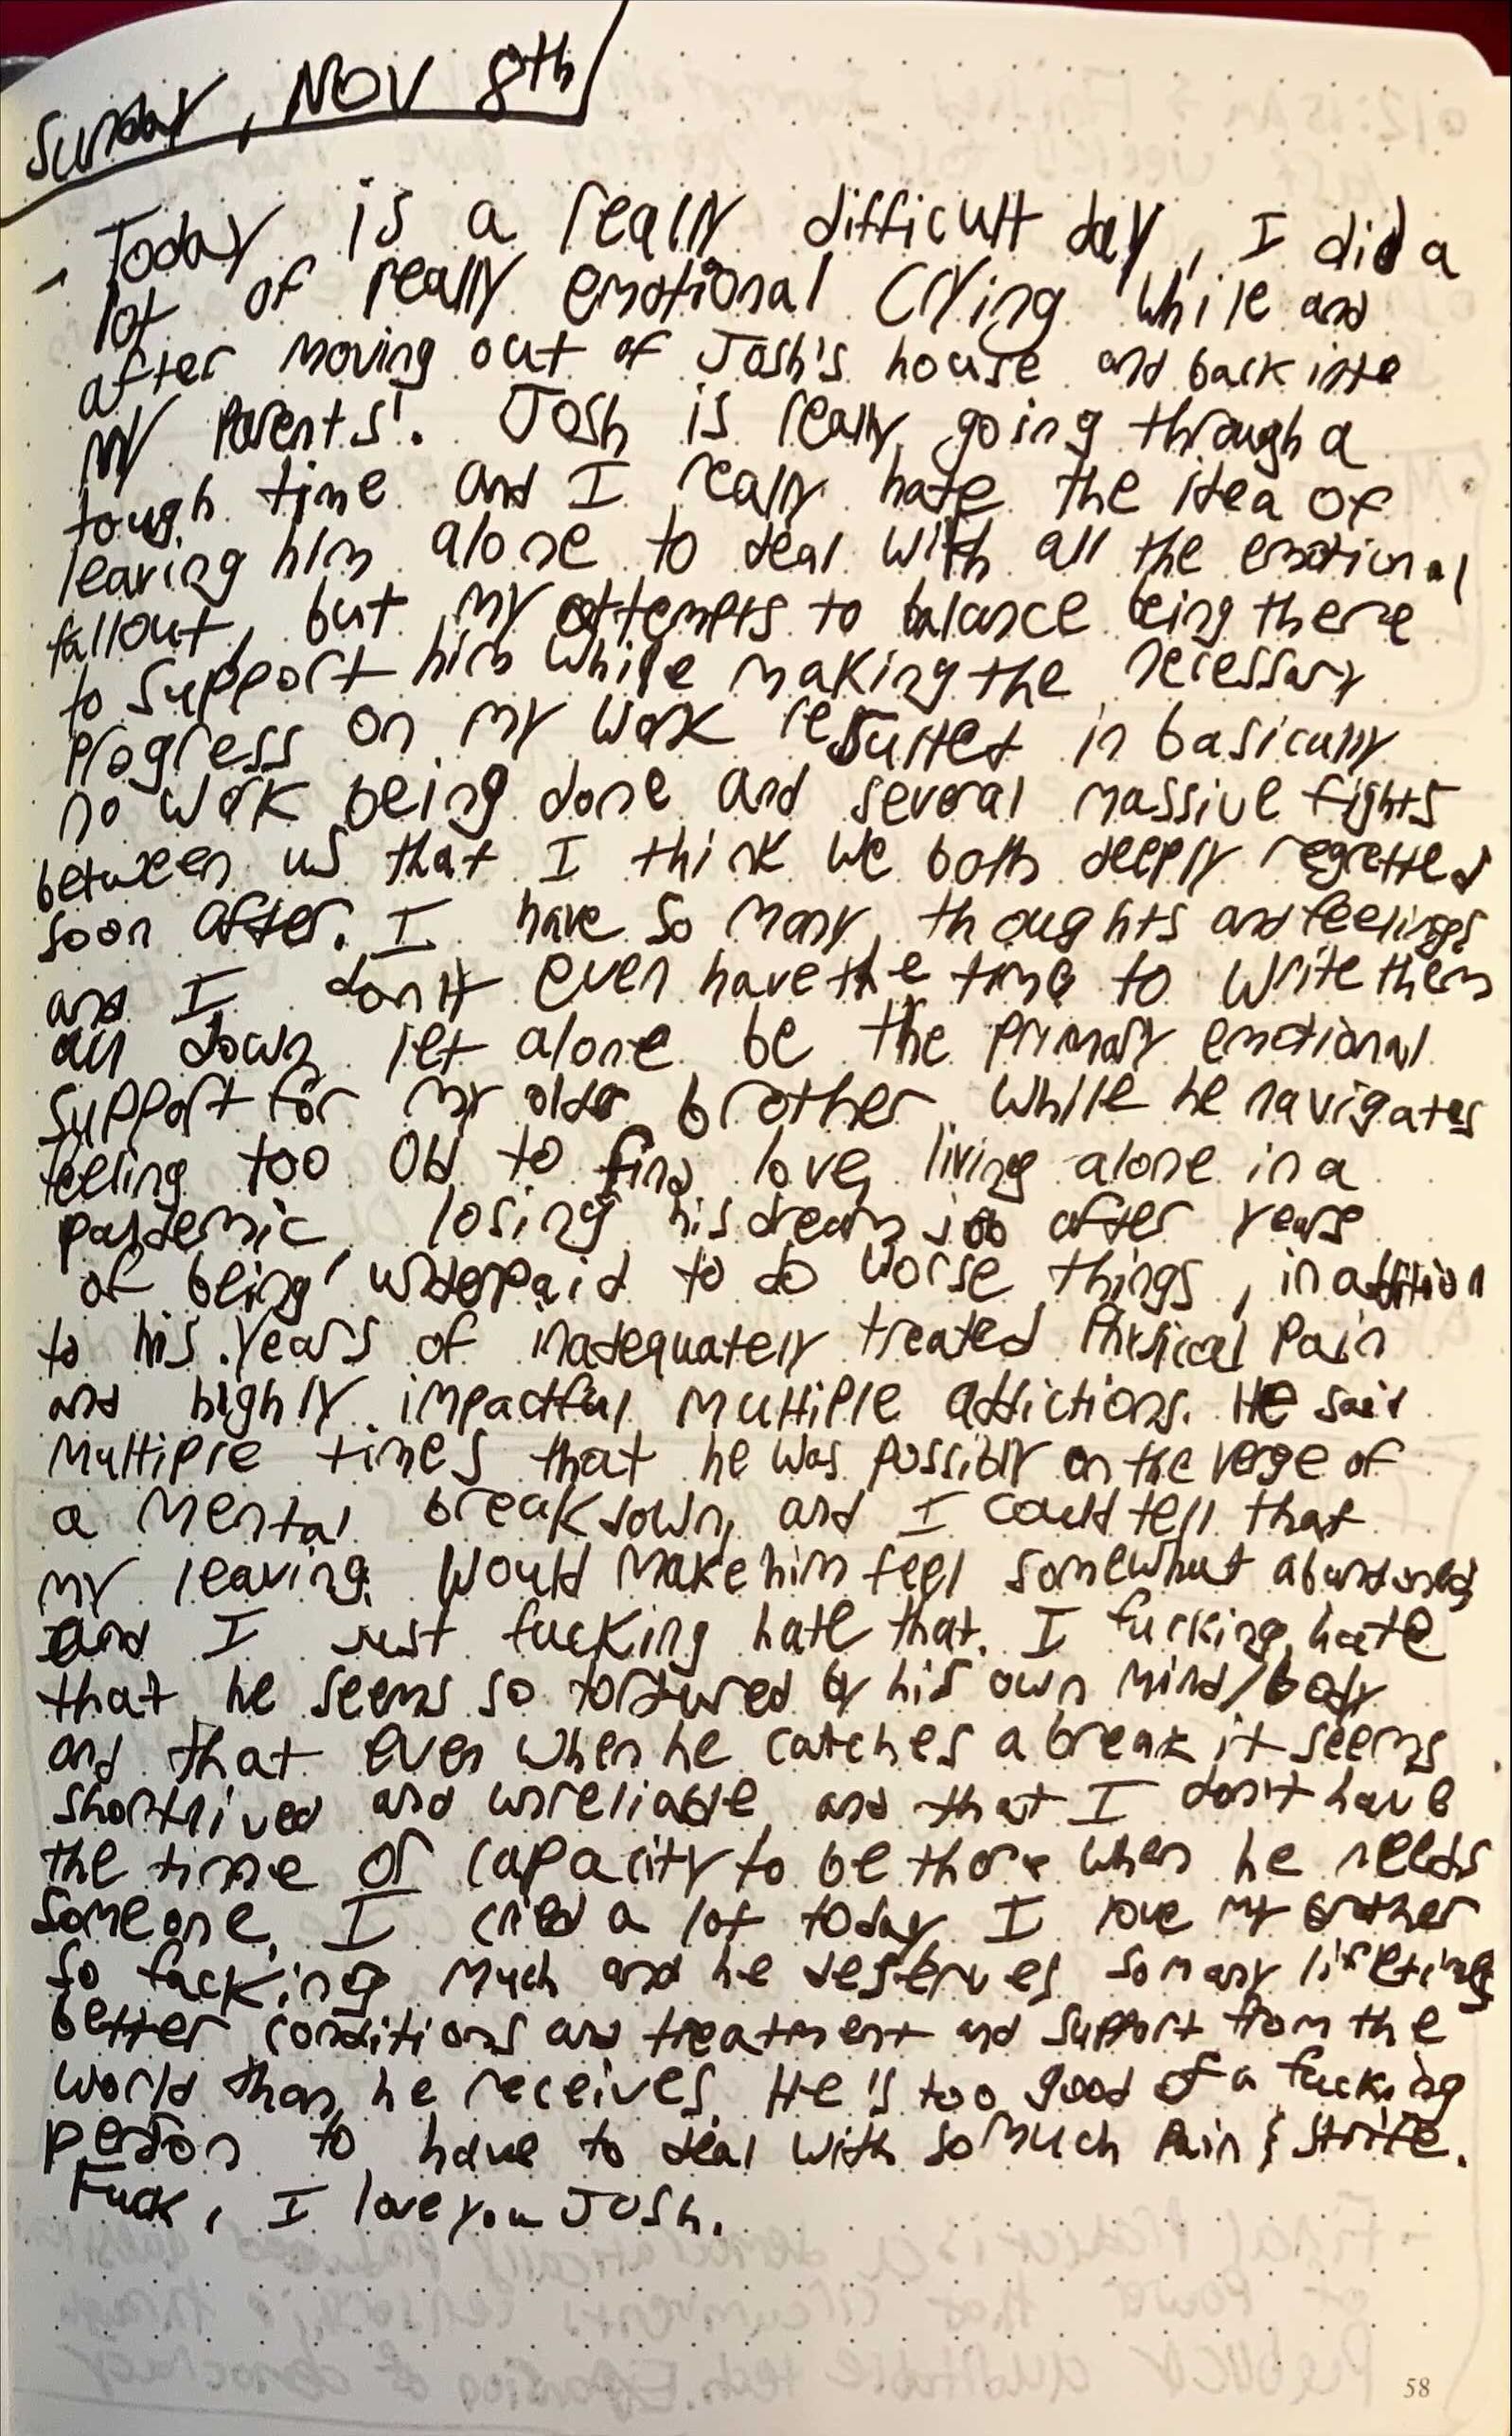 Sunday, Nov 8th
- Today is a really difficult day, I did a
lot of really emotional crying while and
after moving out of Josh's house and back into
my parents'. Josh is really going through a
tough time and I really hate the idea of
leaving him alone to deal with all the emotional
fallout, but my attempts to balance being there
to support him while making the necessary
progress on my work resulted in basically
no work being done and several massive fights
between us that I think we both deeply regretted
soon after. I have so many thoughts and feelings
and I don't even have the time to write them
all down let alone be the primary emotional
support for my older brother while he navigates
feeling too old to find love, living alone in a
pandemic, losing his dream job after years
of being underpaid to do worse things, in addition
to his years of inadequately treated physical pain
and highly impactful multiple addictions. He said
multiple times that he was possibly on the verge of
a mental breakdown, and I could tell that
my leaving would make him feel somewhat abandoned,
and I just fucking hate that. I fucking hate
that he seems so tortured by his own mind/body
and that even when he catches a break it seems
shortlived and unreliable and that I don't have
the time or capacity to be there when he needs
someone. I cried a lot today. I love my brother
so fucking much and he deserves so many lifetimes
better conditions and treatment and support from the
world than he receives. He's too good of a fucking
person to have to deal with so much pain & strife.
Fuck, I love you Josh.
58